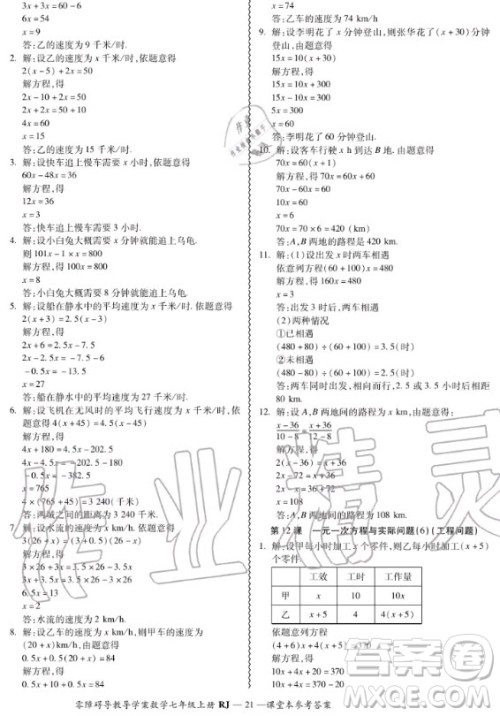 3x+3x=60-6
6x=54
x=9
答:乙的速度为 9 千米/时.
2. 解:设乙的速度为 x 千米/时,依题意得
2(x-5)+2x=50
解方程,得
2x-10+2x=50
2x+2x=50+10
4x=60
x=15
答:乙的速度为 15 千米/时.
3. 解:设快车追上慢车需要 x 小时,依题意得
60x-48x=36
解方程,得
12x=36
x=3
答:快车追上慢车需要 3 小时.
4. 解:设小白兔大概需要 x 分钟就能追上乌龟.
则 101x-1×x=800
解方程,得 100x=800
x=8
答:小白兔大概需要 8 分钟就能追上乌龟.
5. 解:设船在静水中的平均速度为 x 千米/时,依题意得
2(x+3)=2.5(x-3)
2x+6=2.5x-7.5
2x-2.5x=-7.5-6
-0.5x=-13.5
x=27
答:船在静水中的平均速度为 27 千米/时.
6. 解:设飞机在无风时的平均飞行速度为 x 千米/时,依
题意得 4(x+45)=4.5(x-45)
4x+180=4.5x-202.5
4x-4.5x=-202.5-180
-0.5x=-382.5
x=765
4×(765+45)=3 240(千米)
答:两城之间的距离为 3 240 千米.
7. 解:设水流的速度为 x km/时,依题意得
3(26+x)=3.5(26-x)
3×26+3x=3.5×26-3.5x
3x+3.5x=3.5×26-3×26
6.5x=13
x=2
答:水流的速度为 2 km/时.
8. 解:设乙车的速度为 x km/时,则甲车的速度为
(20+x)km/时,依题意得
0.5x+0.5(20+x)=84
解方程,得
0.5x+0.5x+20×0.5=84
x=74
答:乙车的速度为 74 km/时
9. 解:设李明花了 x 分钟登山,则张华花了(x+30)分钟
登山,由题意得
15x=10(x+30)
解方程,得
15x=10x+300
5x=300
x=60
答:李明花了 60 分钟登山.
10. 解:设客车行驶 x h 到达 B 地.由题意得
70x=60(x+1)
解方程,得
70x=60x+60
x=6
70x=70×6=420(km)
答:A,B 两地的路程是 420 km.
11. 解:(1)设出发 x 时两车相遇
依意列方程(60+100)x=480
解方程,得 x=3
答:出发 3 时后,两车相遇
(2)两种情况
①已相遇
(480+80)÷(60+100)=3.5(时)
②未相遇
(480-80)÷(60+100)=2.5(时)
答:两车同时开出,相向而行,2.5 或 3.5 小时后相距
80 km.
12. 解:设 A,B 两地间的路程为 x km,由题意得
(x-36)/(10-8)=(x+36)/(12-8)
2(x-36)=x+36
2x-72=x+36
x=108
答:A,B 两地间的路程为 108 km.
第 12 课 一元一次方程与实际问题(6)(工程问题)
1. 解:设甲每小时加工 x 个零件,则乙每小时加工(x+5)
个零件.
工效 工时 工作量
甲 x 10 10x
乙 x+5 4 4(x+5)
依题意列方程
零障碍导教导学案数学七年级上册 RJ — 21 —课堂本参考答案
作业精灵